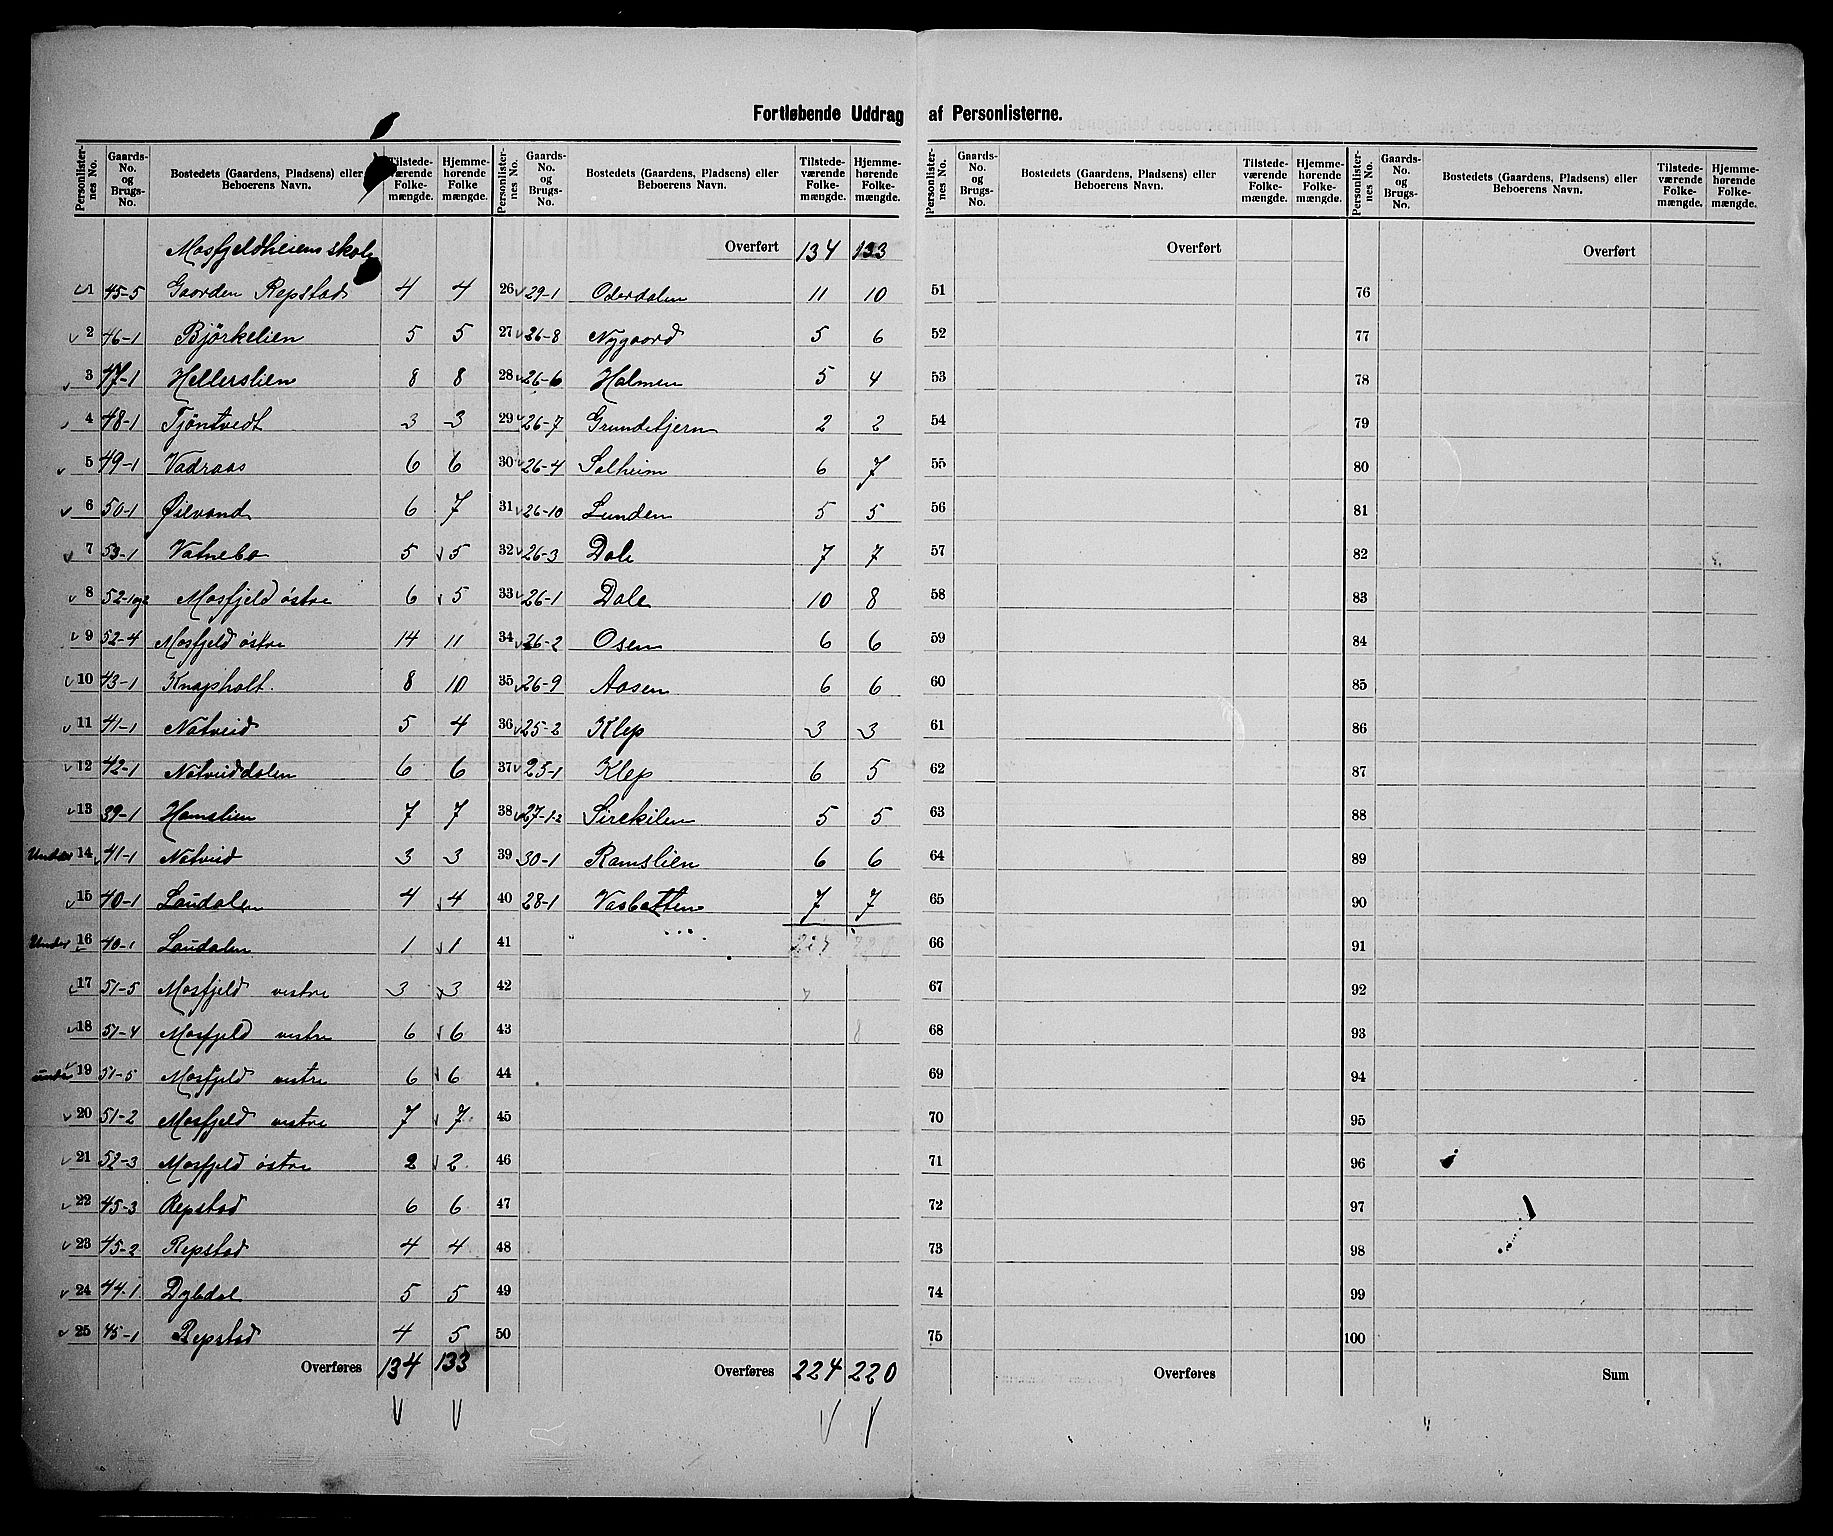 Fortløbende Uddrag af Personlisterne.
Personlisternes No. Gaards-No. og Brugs-No. Bostedets (Gaardens, Pladsens) eller Beboerens Navn. Tilstedeværende Folkemængde. Hjemmehørende Folkemængde.
Mosfjeldheiens skole
1 45-5 Gaarden Repstad 4 4
2 46-1 Bjørkelien 5 5
3 47-1 Hellerslien 8 8
4 48-1 Tjøntvedt 3 3
5 49-1 Vadraas 6 6
6 50-1 Øilvand 6 7
7 53-1 Vatnebo 5 5
8 52-1og2 Mosfjeld østre 6 5
9 52-4 Mosfjeld østre 14 11
10 43-1 Knapholt. 8 10
11 41-1 Natveid 5 4
12 42-1 Natveiddalen 6 6
13 39-1 Hamslien 7 7
Under 14 41-1 Natveid 3 3
15 40-1 Laudalen 4 4
Under 16 40-1 Laudalen 1 1
17 51-5 Mosfjeld vestre 3 3
18 51-4 Mosfjeld vestre 6 6
under 19 51-5 Mosfjeld vestre 6 6
20 51-2 Mosfjeld vestre 7 7
21 52-3 Mosfjeld østre 2 2
22 45-3 Repstad 6 6
23 45-2 Repstad 4 4
24 44-1 Dybdal 5 5
25 45-1 Repstad 4 5
Overføres 134 133
Personlisternes No. Gaards-No. og Brugs-No. Bostedets (Gaardens, Pladsens) eller Beboerens Navn. Tilstedeværende Folkemængde. Hjemmehørende Folkemængde.
Overført 134 133
26 29-1 Oderdalen 11 10
27 26-8 Nygaard 5 6
28 26-6 Holmen 5 4
29 26-7 Grundetjern 2 2
30 26-4 Solheim 6 7
31 26-10 Lunden 5 5
32 26-3 Dale 7 7
33 26-1 Dale 10 8
34 26-2 Osen 6 6
35 26-9 Aasen 6 6
36 25-2 Klep 3 3
37 25-1 Klep 6 5
38 27-1-2 Sirekilen 5 5
39 30-1 Ramslien 6 6
40 28-1 Vasbotten 7 7
41
42
43
44
45
46
47
48
49
50
Overføres 224 220
Personlisternes No. Gaards-No. og Brugs-No. Bostedets (Gaardens, Pladsens) eller Beboerens Navn. Tilstedeværende Folkemængde. Hjemmehørende Folkemængde.
Overført
51
52
53
54
55
56
57
58
59
60
61
62
63
64
65
66
67
68
69
70
71
72
73
74
75
Overføres
Personlisternes No. Gaards-No. og Brugs-No. Bostedets (Gaardens, Pladsens) eller Beboerens Navn. Tilstedeværende Folkemængde. Hjemmehørende Folkemængde.
Overført
76
77
78
79
80
81
82
83
84
85
86
87
88
89
90
91
92
93
94
95
96
97
98
99
100
Sum